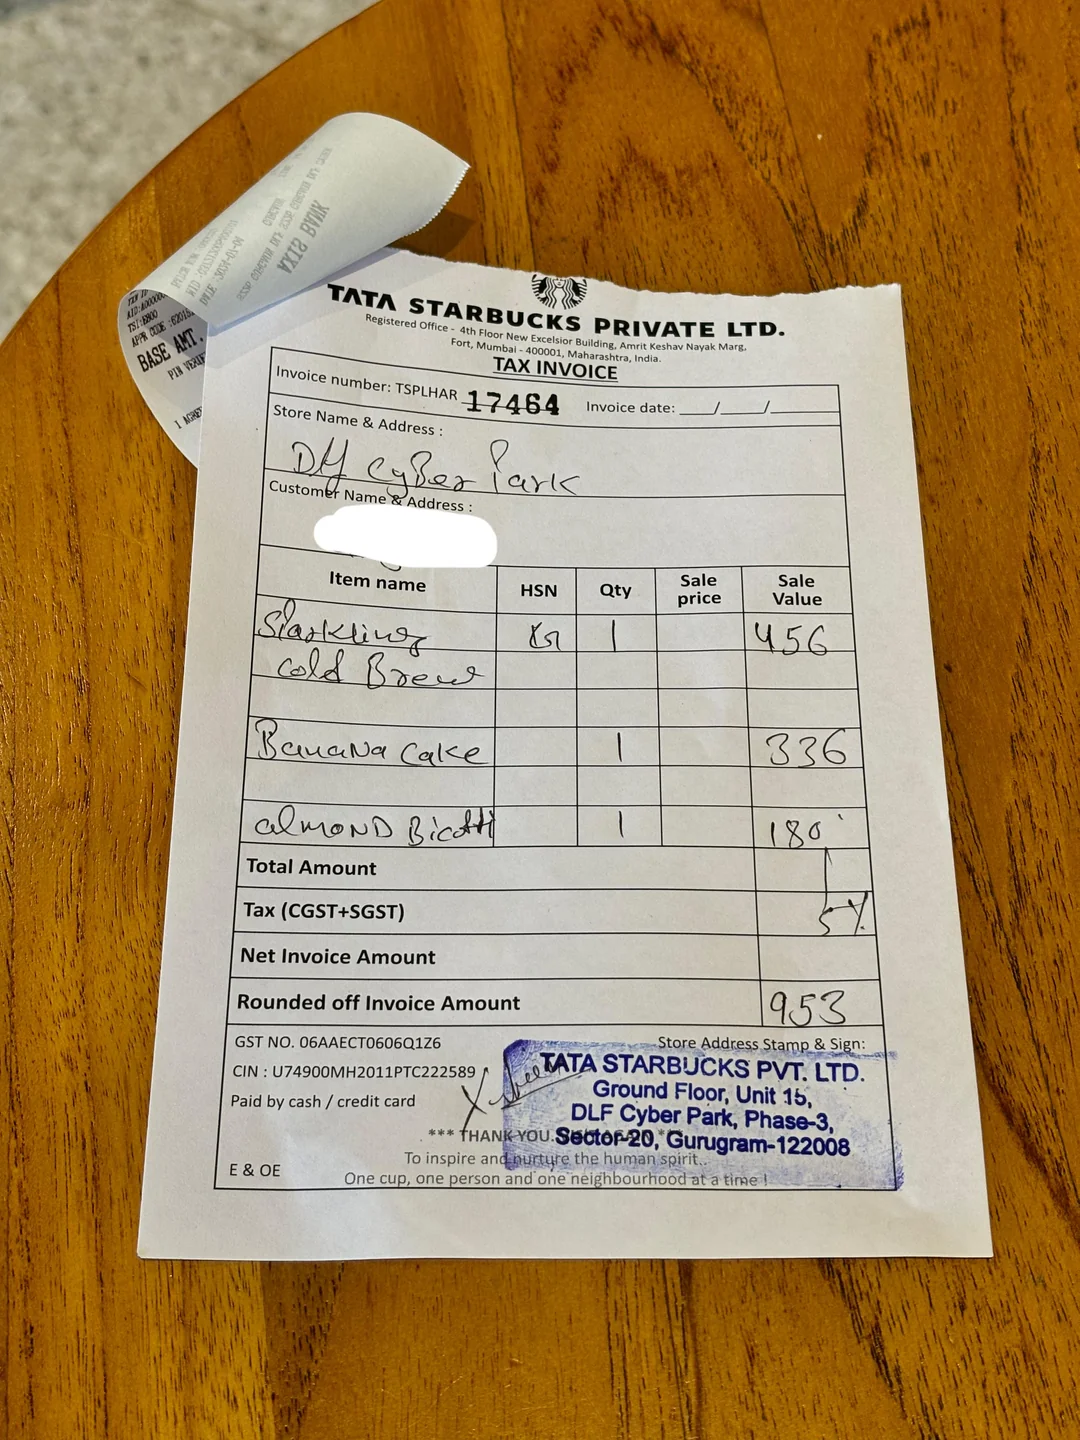 AXIS BANK
BASE AMT.
TATA STARBUCKS PRIVATE LTD.
Registered Office - 4th Floor New Excelsior Building, Amrit Keshav Nayak Marg,
Fort, Mumbai - 400001, Maharashtra, India.
TAX INVOICE
Invoice number: TSPLHAR 17464 Invoice date: ___/___/______
Store Name & Address :
Dlf CyBer Park
Customer Name & Address :
Item name HSN Qty Sale price Sale Value
Sparkling 1 456
cold Brew
BanaNa cake 1 336
almOND Bicotti 1 180
Total Amount
Tax (CGST+SGST) 5%
Net Invoice Amount
Rounded off Invoice Amount 953
GST NO. 06AAECT0606Q1Z6 Store Address Stamp & Sign:
CIN : U74900MH2011PTC222589
Paid by cash / credit card
TATA STARBUCKS PVT. LTD.
Ground Floor, Unit 15,
DLF Cyber Park, Phase-3,
Sector-20, Gurugram-122008
*** THANK YOU.
To inspire and nurture the human spirit..
E & OE
One cup, one person and one neighbourhood at a time !